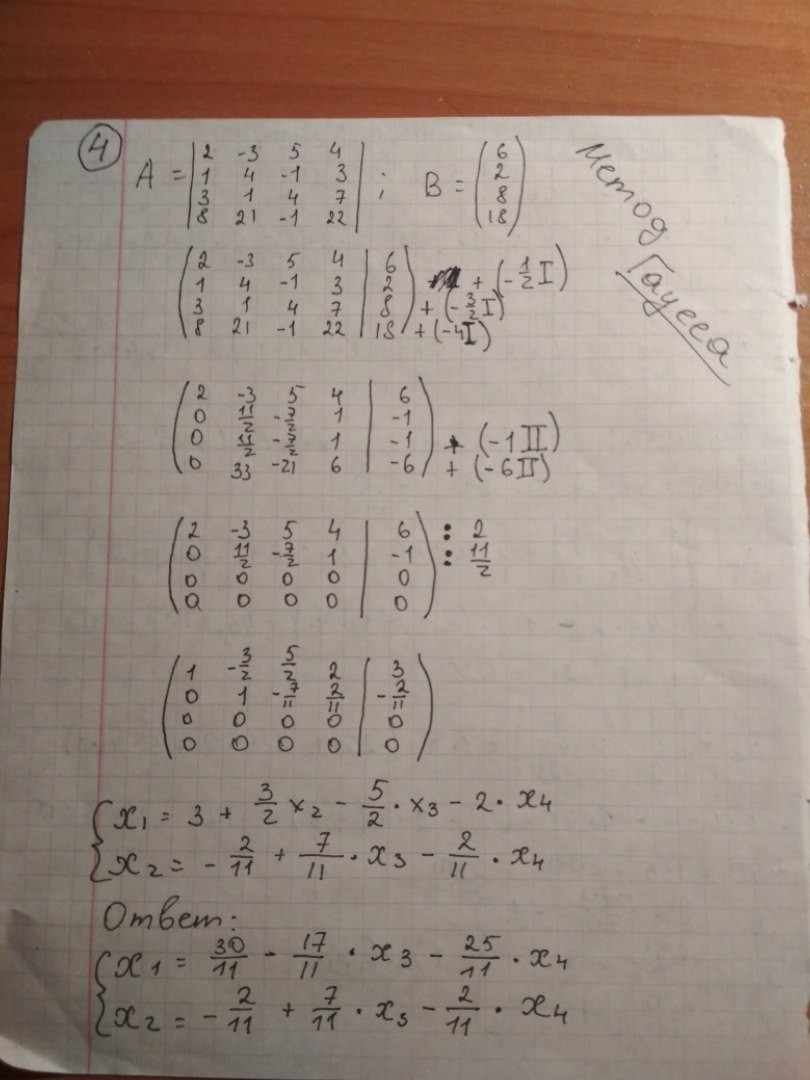 4
A = | 2 -3 5 4 | ; B = ( 6 )
1 4 -1 3 2
3 1 4 7 8
8 21 -1 22 18
Метод Гаусса
2 -3 5 4 | 6
1 4 -1 3 | 2 + (-1/2 I)
3 1 4 7 | 8 + (-3/2 I)
8 21 -1 22 | 18 + (-4 I)
2 -3 5 4 | 6
0 11/2 -7/2 1 | -1
0 11/2 -7/2 1 | -1 + (-1 II)
0 33 -21 6 | -6 + (-6 II)
2 -3 5 4 | 6 : 2
0 11/2 -7/2 1 | -1 : 11/2
0 0 0 0 | 0
0 0 0 0 | 0
1 -3/2 5/2 2 | 3
0 1 -7/11 2/11 | -2/11
0 0 0 0 | 0
0 0 0 0 | 0
x1 = 3 + 3/2 x2 - 5/2 · x3 - 2 · x4
x2 = - 2/11 + 7/11 · x3 - 2/11 · x4
Ответ:
x1 = 30/11 - 17/11 · x3 - 25/11 · x4
x2 = - 2/11 + 7/11 · x3 - 2/11 · x4